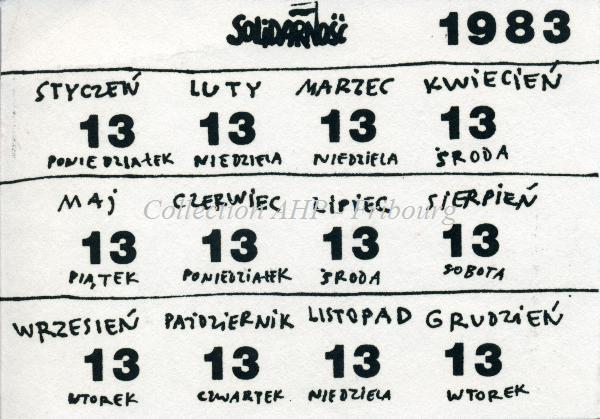 SOLIDARNOŚĆ 1983
STYCZEŃ LUTY MARZEC KWIECIEŃ
13 13 13 13
PONIEDZIAŁEK NIEDZIELA NIEDZIELA ŚRODA
MAJ CZERWIEC LIPIEC SIERPIEŃ
Collection AHP - Fribourg
13 13 13 13
PIĄTEK PONIEDZIAŁEK ŚRODA SOBOTA
WRZESIEŃ PAŹDZIERNIK LISTOPAD GRUDZIEŃ
13 13 13 13
WTOREK CZWARTEK NIEDZIELA WTOREK